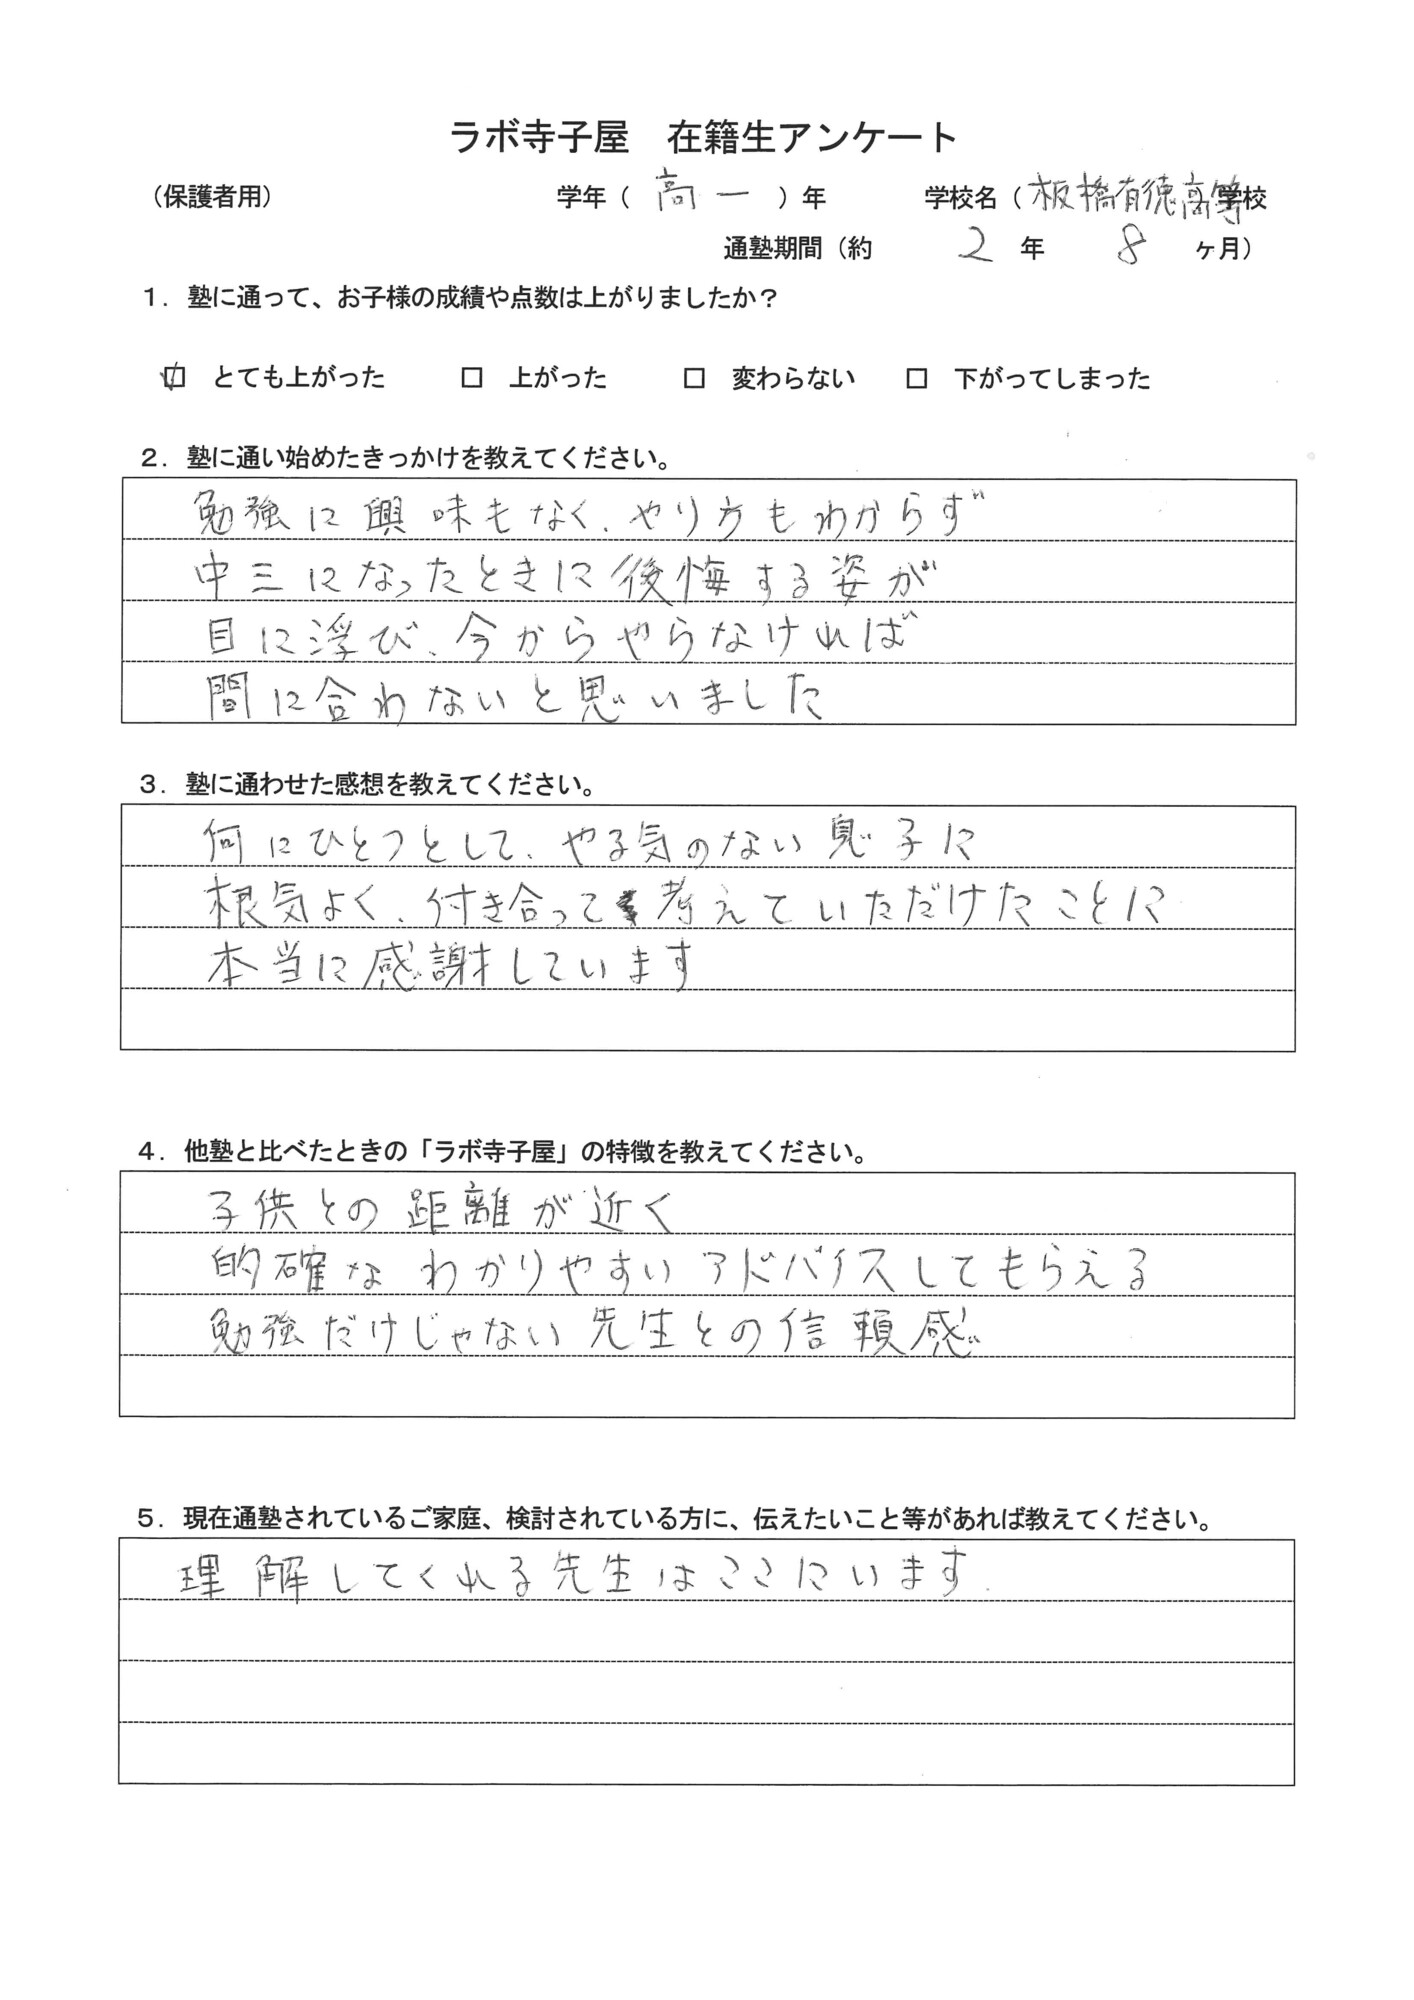 ラボ寺子屋　在籍生アンケート
（保護者用）　学年（ 高一 ）年　学校名（ 板橋有徳高等学校
通塾期間（約 2 年 8 ヶ月）
１．塾に通って、お子様の成績や点数は上がりましたか？
☑ とても上がった　□ 上がった　□ 変わらない　□ 下がってしまった
２．塾に通い始めたきっかけを教えてください。
勉強に興味もなく、やり方もわからず
中三になったときに後悔する姿が
目に浮び、今からやらなければ
間に合わないと思いました
３．塾に通わせた感想を教えてください。
何にひとつとして、やる気のない息子に
根気よく、付き合って考えていただけたことに
本当に感謝しています
４．他塾と比べたときの「ラボ寺子屋」の特徴を教えてください。
子供との距離が近く
的確なわかりやすいアドバイスしてもらえる
勉強だけじゃない先生との信頼感
５．現在通塾されているご家庭、検討されている方に、伝えたいこと等があれば教えてください。
理解してくれる先生はここにいます.